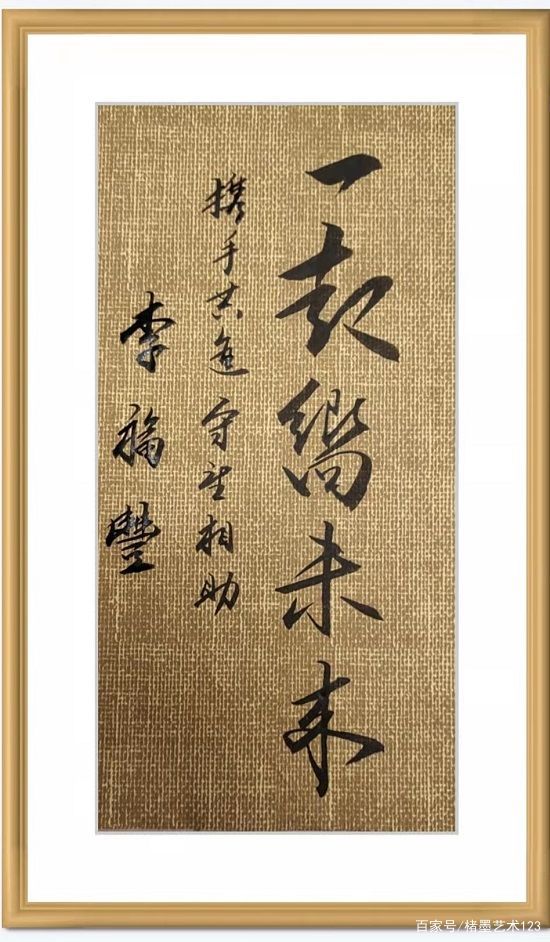 一起嚮未来
携手共進 守望相助
李福豐
百家号/楮墨艺术123